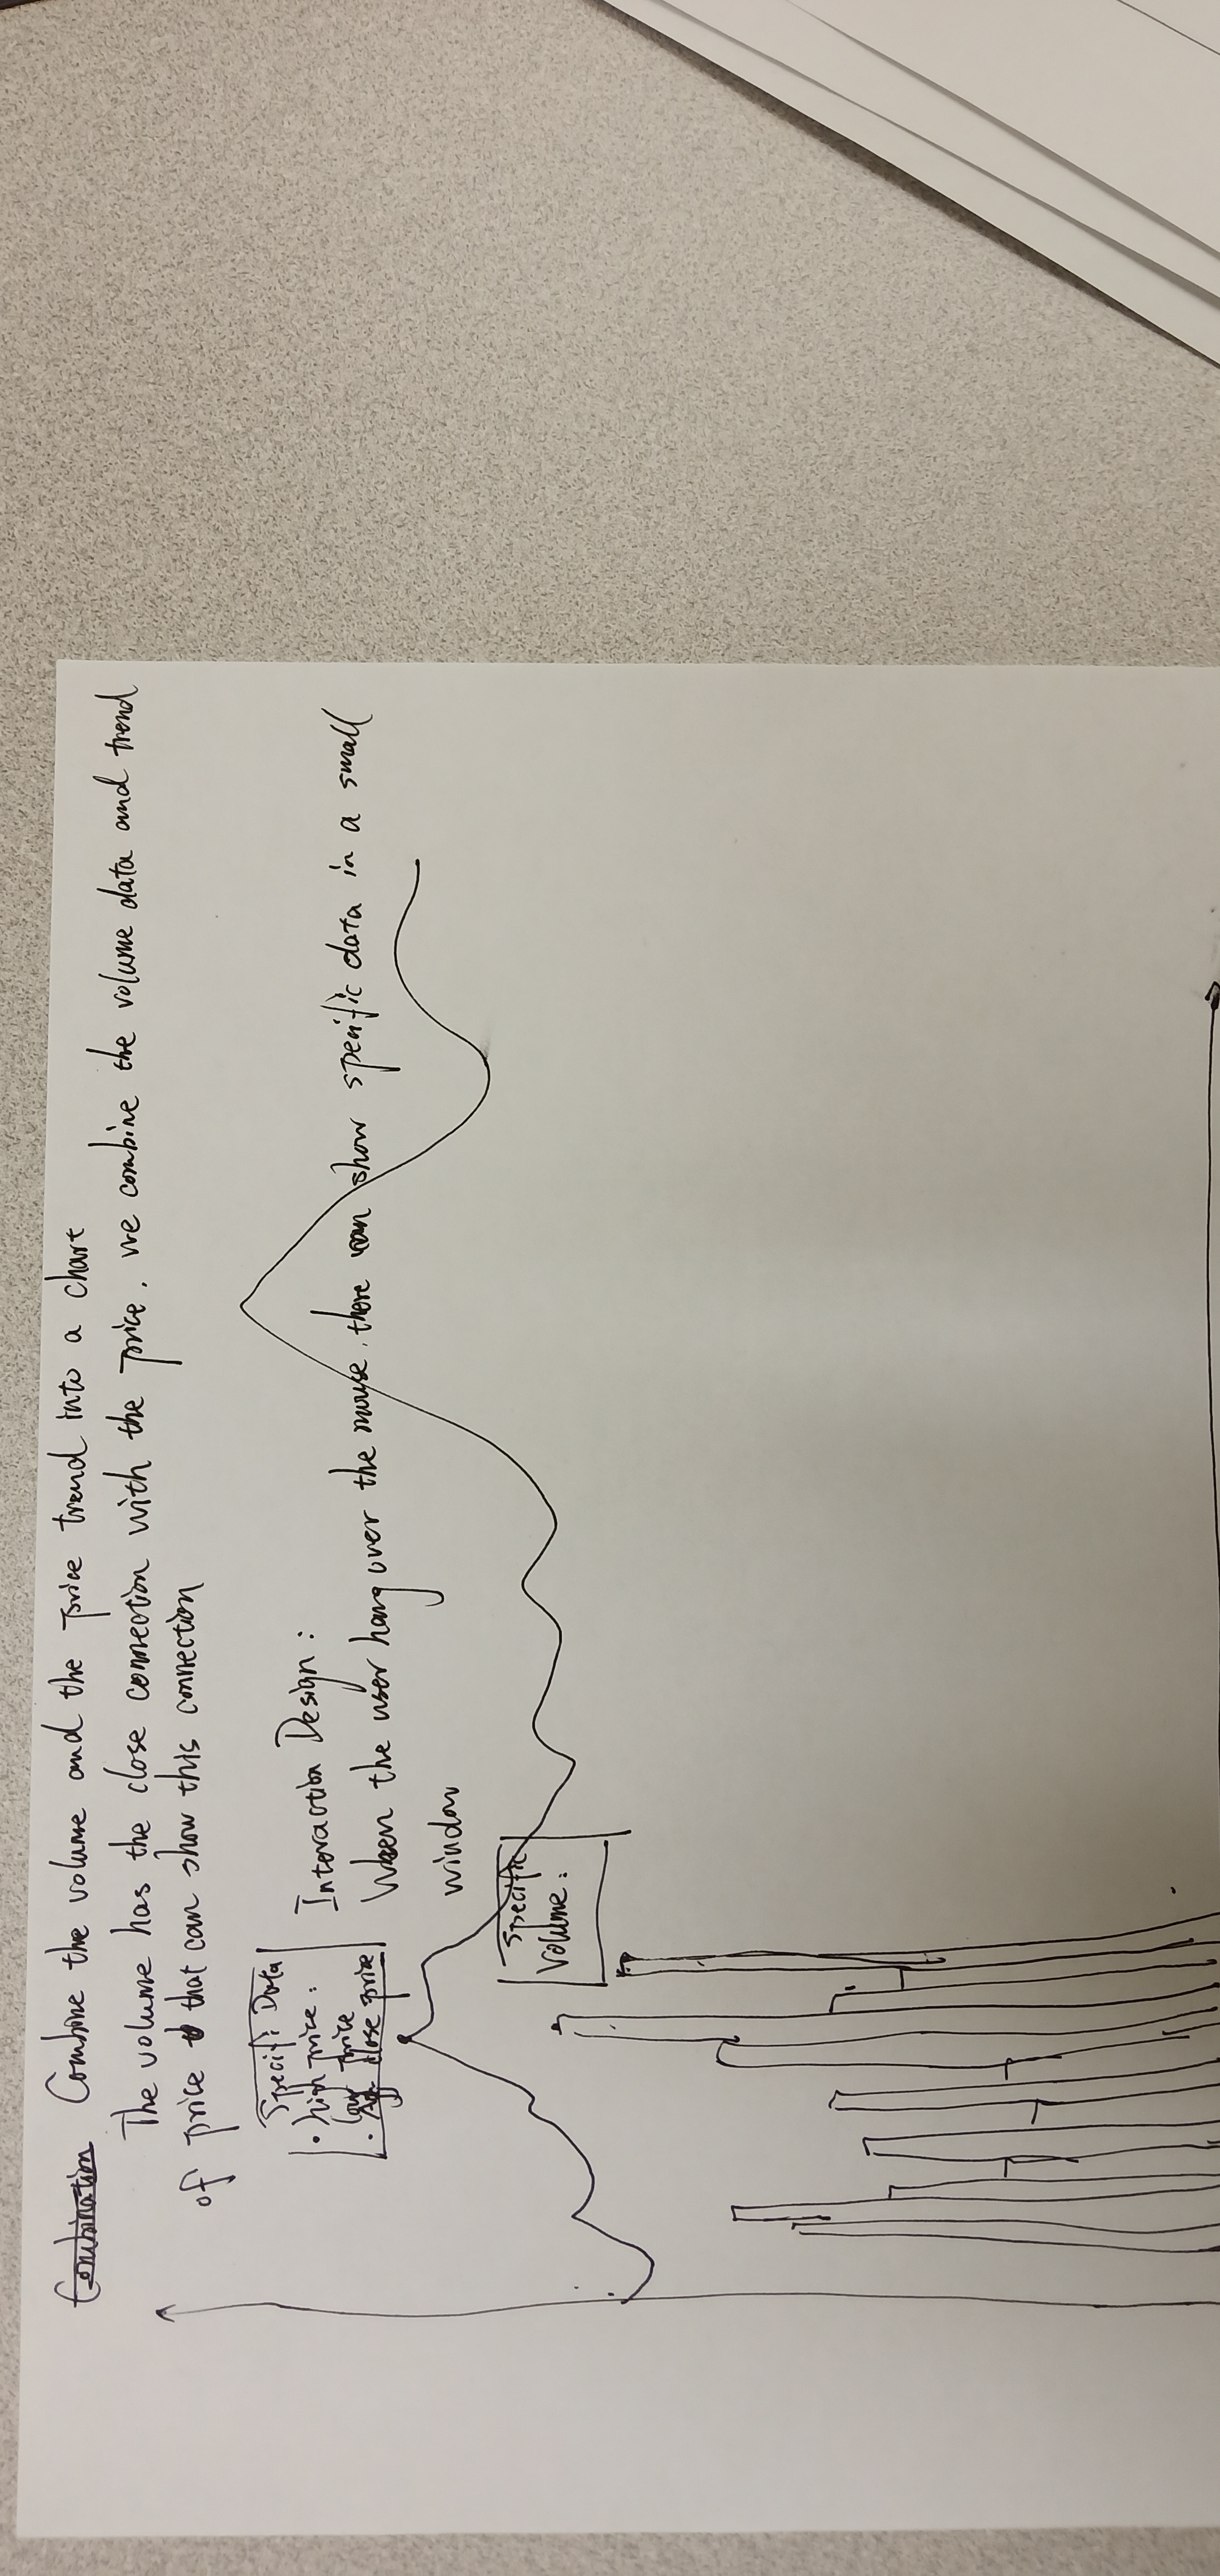 Combination Combine the volume and the price trend into a chart
The volume has the close connection with the price, we combine the volume data and trend
of price that can show this connection
Specific Data
• high price:
low price
• close price
Interaction Design:
When the user hang over the mouse, there can show specific data in a small
window
Specific
Volume: